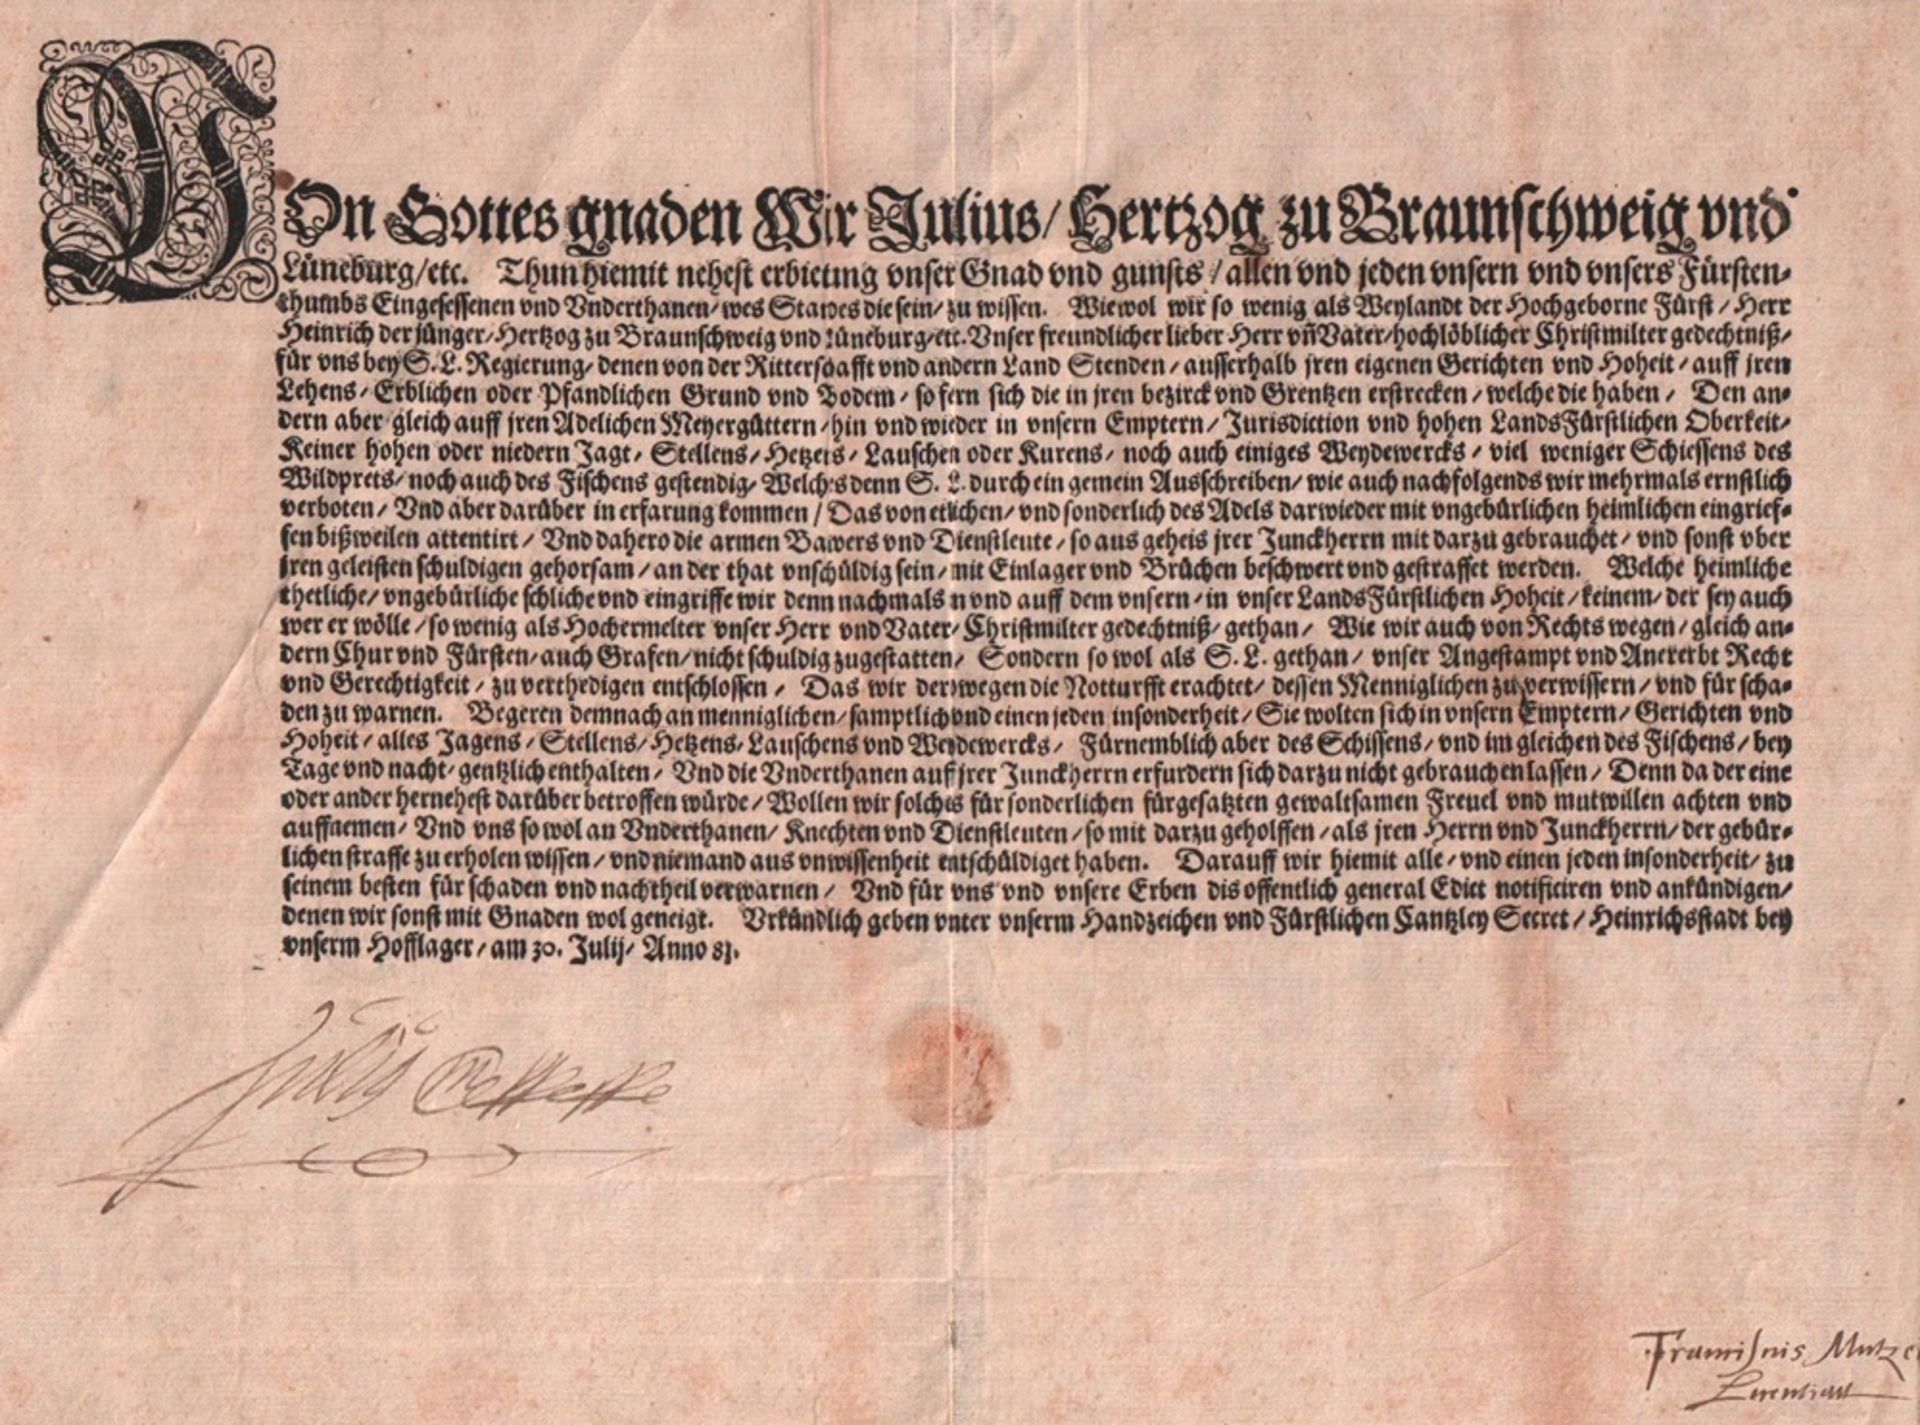 VOn Gottes gnaden Wir Julius/ Hertzog zu Braunschweig vnd
Lüneburg/etc. Thun hiemit nehest erbietung vnser Gnad vnd gunsts/ allen vnd jeden vnsern vnd vnsers Fürsten-
thumbs Eingesessenen vnd Vnderthanen/ wes Standes die sein/ zu wissen. Wiewol wir so wenig als Weylandt der Hochgeborne Fürst/ Herr
Heinrich der jünger/ Hertzog zu Braunschweig vnd Lüneburg/etc. Vnser freundlicher lieber Herr vñ Vater/ hochlöblicher Christmilter gedechtniß/
für vns bey S. L. Regierung/ denen von der Ritterschafft vnd andern Land Stenden/ ausserhalb jren eigenen Gerichten vnd Hoheit/ auff jren
Lehens/ Erblichen oder Pfandlichen Grund vnd Bodem/ so fern sich die in jren bezirck vnd Grentzen erstrecken/ welche die haben/ Den an-
dern aber gleich auff jren Adelichen Meyergüttern/ hin vnd wieder in vnsern Emptern/ Jurisdiction vnd hohen LandsFürstlichen Oberkeit/
Keiner hohen oder niedern Jagt/ Stellens/ Hetzens/ Lauschen oder Kurens/ noch auch einiges Weydewercks/ viel weniger Schiessens des
Wildprets/ noch auch des Fischens gestendig/ Welchs denn S. L. durch ein gemein Ausschreiben/ wie auch nachfolgends wir mehrmals ernstlich
verboten/ Vnd aber darüber in erfarung kommen/ Das von etlichen/ vnd sonderlich des Adels darwieder mit vngebürlichen heimlichen eingrief-
fen bißweilen attentirt/ Vnd dahero die armen Bawers vnd Dienstleute/ so aus geheis jrer Junckherrn mit darzu gebrauchet/ vnd sonst vber
jren geleisten schuldigen gehorsam/ an der that vnschüldig sein/ mit Einlager vnd Brüchen beschwert vnd gestraffet werden. Welche heimliche
thetliche/ vngebürliche schliche vnd eingriffe wir denn nachmals in vnd auff dem vnsern/ in vnser LandsFürstlichen Hoheit/ keinem/ der sey auch
wer er wölle/ so wenig als Hochermelter vnser Herr vnd Vater/ Christmilter gedechtniß/ gethan/ Wie wir auch von Rechts wegen/ gleich an-
dern Chur vnd Fürsten/ auch Grafen/ nicht schuldig zugestatten/ Sondern so wol als S. L. gethan/ vnser Angestampt vnd Anererbt Recht
vnd Gerechtigkeit/ zu verthedigen entschlossen/ Das wir derwegen die Notturfft erachtet/ dessen Menniglichen zu verwissern/ vnd für scha-
den zu warnen. Begeren demnach an menniglichen/ samptlich vnd einen jeden insonderheit/ Sie wolten sich in vnsern Emptern/ Gerichten vnd
Hoheit/ alles Jagens/ Stellens/ Hetzens/ Lauschens vnd Weydewercks/ Fürnemblich aber des Schissens/ vnd im gleichen des Fischens/ bey
Tage vnd nacht/ gentzlich enthalten/ Vnd die Vnderthanen auf jrer Junckherrn erfurdern sich darzu nicht gebrauchen lassen/ Denn da der eine
oder ander hernehest darüber betroffen würde/ Wollen wir solchs für sonderlichen fürgesatzten gewaltsamen Freuel vnd mutwillen achten vnd
auffnemen/ Vnd vns so wol an Vnderthanen/ Knechten vnd Dienstleuten/ so mit darzu geholffen/ als jren Herrn vnd Junckherrn/ der gebür-
lichen straffe zu erholen wissen/ vnd niemand aus vnwissenheit entschüldiget haben. Darauff wir hiemit alle/ vnd einen jeden insonderheit/ zu
seinem besten für schaden vnd nachtheil verwarnen/ Vnd für vns vnd vnsere Erben dis offentlich general Edict notificiren vnd ankündigen/
denen wir sonst mit Gnaden wol geneigt. Vrkündlich geben vnter vnserm Handzeichen vnd Fürstlichen Cantzley Secret/ Heinrichsstadt bey
vnserm Hofflager/ am 30. Julij/ Anno 81.